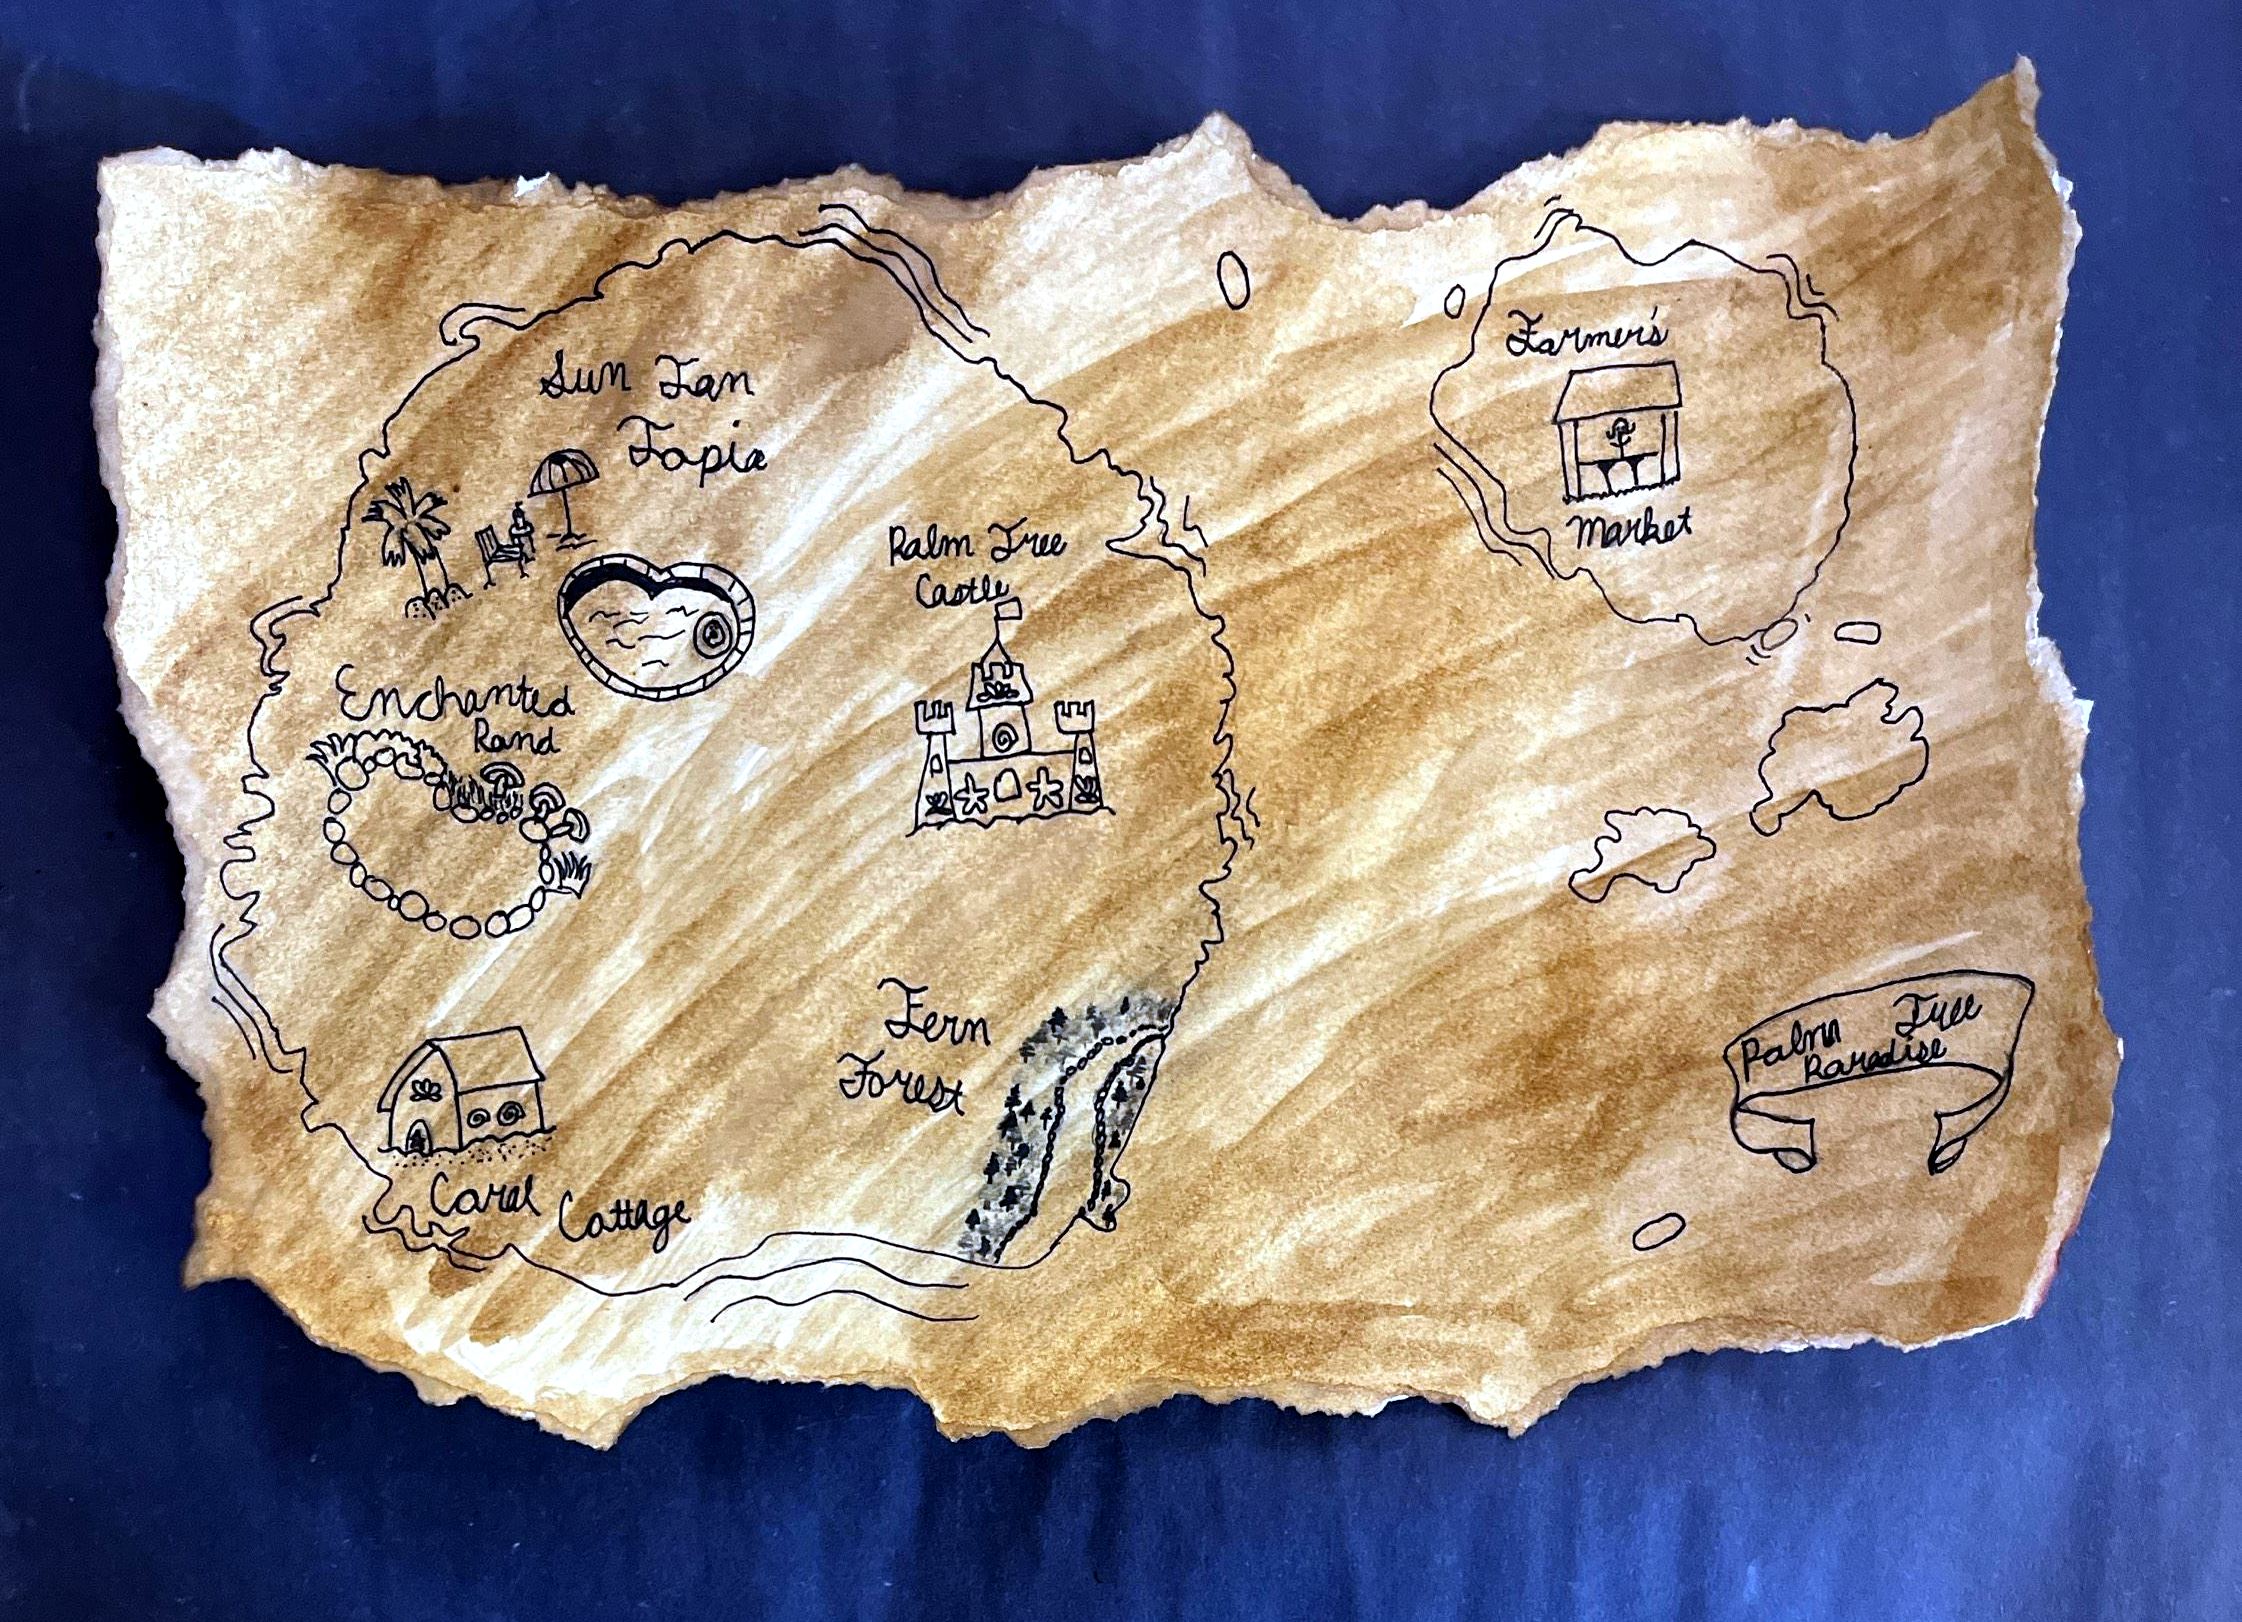 Sun Tan
Topia
Palm Tree
Castle
Enchanted
Pond
Fern
Forest
Coral Cottage
Farmer's
Market
Palm Tree
Paradise